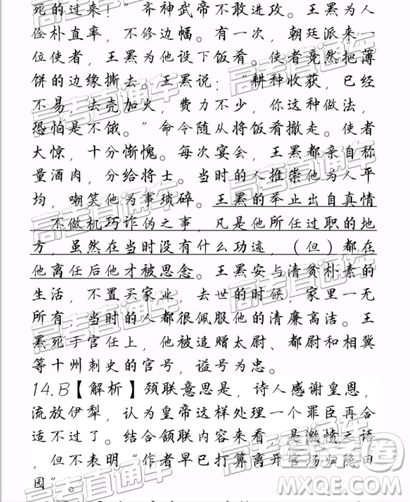 死的过来！”齐神武帝不敢进攻。王罴为人
俭朴直率，不修边幅。有一次，朝廷派来一
位使者，王罴为他设下饭肴，使者竟然把薄
饼的边缘撕去，王罴说：“耕种收获，已经
不易，去壳加火，费力不少，你这种做法，
恐怕是不饿。”命令随从将饭肴撤走。使者
大惊，十分惭愧。每次宴会，王罴都亲自称
量酒肉，分给将士。当时的人推崇他为人平
均，嘲笑他为事琐碎。王罴的举止出自真情
不做机巧诈伪之事，凡是他所任过职的地
方，虽然在当时没有什么功迹，（但）都在
他离任后他才被思念。王罴安与清贫朴素的
生活，不置买家业，去世的时候，家里一无
所有，当时的人都很佩服他的清廉高洁。王
罴死于官任上，他被追赠太尉、都尉和相冀
等十州刺史的官号，谥号为忠。
14.B【解析】颔联意思是，诗人感谢皇恩，
流放伊犁，认为皇帝这样处理一个罪臣再合
适不过了。结合颔联内容来看，是激愤之语
，但不表明“作者早已打算离开官场归隐田
园”。
高考直通车
答案圈
MXQE.COM